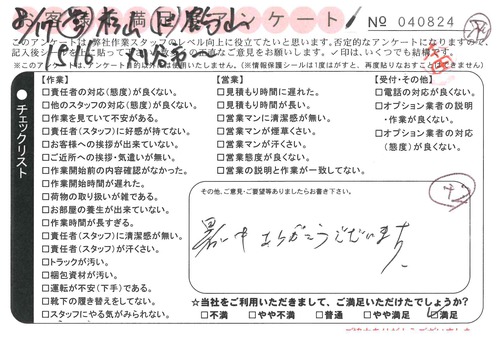 お客様満足度アンケート No 040824
このアンケートは、弊社作業スタッフのレベル向上に役立てたいと思います。否定的なアンケートになりますので、
※このアンケートは
(※情報保護シールは1度がはがすと、再度貼りなおすことはできません)
チェックリスト
【作業】
□責任者の対応(態度)が良くない。
□他のスタッフの対応(態度)が良くない。
□作業を見ていて不安がある。
□責任者(スタッフ)に好感が持てない。
□お客様への挨拶が出来ていない。
□ご近所への挨拶・気遣いが無い。
□作業開始前の内容確認がなかった。
□作業開始時間が遅れた。
□荷物の取り扱いが雑である。
□お部屋の養生が出来ていない。
□作業時間が長すぎる。
□責任者(スタッフ)に清潔感が無い。
□責任者(スタッフ)が汗くさい。
□トラックが汚い。
□梱包資材が汚い。
□運転が不安(下手)である。
□靴下の履き替えをしてない。
□スタッフにやる気がみられない。
【営業】
□見積もり時間に遅れた。
□見積もり時間が長い。
□営業マンに清潔感が無い。
□営業マンが煙草くさい。
□営業マンが汗くさい。
□営業態度が良くない。
□営業の説明と作業が一致してない。
【受付・その他】
□電話の対応が良くない。
□オプション業者の説明
・作業が良くない。
□オプション業者の対応
(態度)が良くない。
その他、ご意見・ご要望等ありましたらお書き下さい。
暑い中ありがとうございます
☆当社をご利用いただきまして、ご満足いただけたでしょうか?
□不満 □やや不満 □普通 □やや満足 □満足